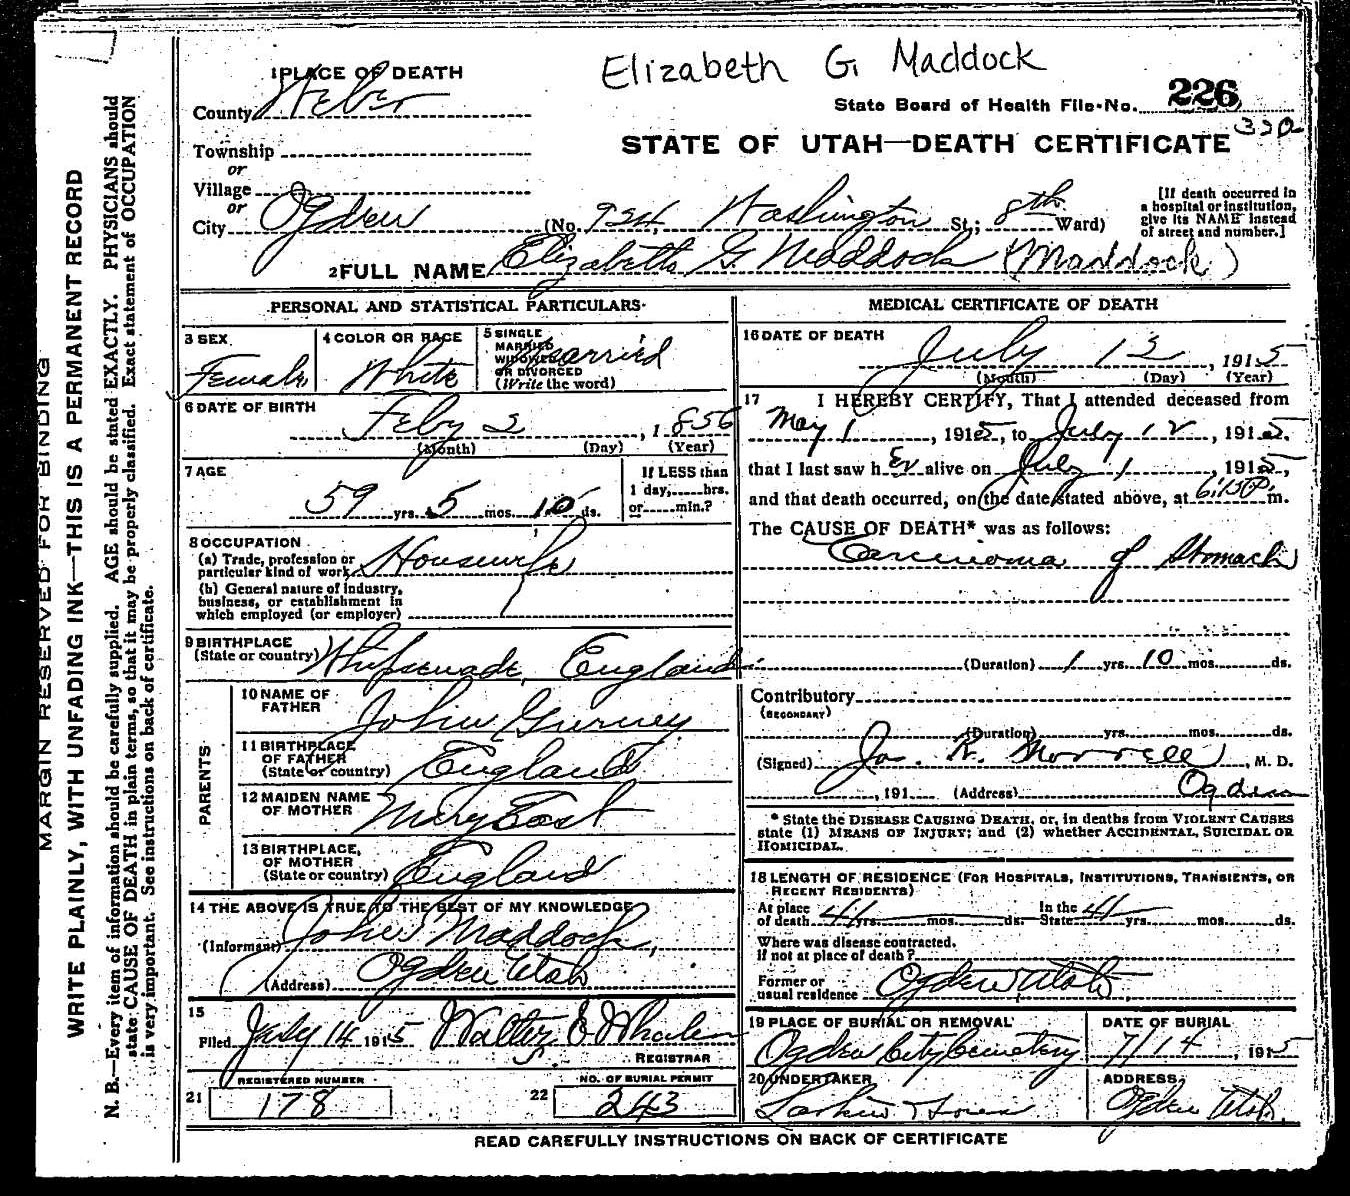 Elizabeth G. Maddock
1 PLACE OF DEATH
County Weber
State Board of Health File No. 226
320
Township
STATE OF UTAH—DEATH CERTIFICATE
or
Village
or
City Ogden (No. 924, Washington St.; 8th Ward)
[If death occurred in
a hospital or institution,
give its NAME instead
of street and number.]
2 FULL NAME Elizabeth G. Maddock (Maddock)
PERSONAL AND STATISTICAL PARTICULARS
3 SEX
Female
4 COLOR OR RACE
White
5 SINGLE
MARRIED
WIDOWED
OR DIVORCED
(Write the word)
Married
6 DATE OF BIRTH
Feby 2, 1856
(Month) (Day) (Year)
7 AGE
59 yrs. 5 mos. 10 ds.
If LESS than
1 day,.....hrs.
or.....min.?
8 OCCUPATION
(a) Trade, profession or
particular kind of work Housewife
(b) General nature of industry,
business, or establishment in
which employed (or employer)
9 BIRTHPLACE
(State or country) Whipsnade, England
PARENTS
10 NAME OF
FATHER John Gurney
11 BIRTHPLACE
OF FATHER
(State or country) England
12 MAIDEN NAME
OF MOTHER Mary East
13 BIRTHPLACE,
OF MOTHER
(State or country) England
14 THE ABOVE IS TRUE TO THE BEST OF MY KNOWLEDGE
(Informant) John Maddock,
(Address) Ogden Utah
15
Filed July 14 1915 Walter E Whalen
REGISTRAR
21 REGISTERED NUMBER
178
22 NO. OF BURIAL PERMIT
243
MEDICAL CERTIFICATE OF DEATH
16 DATE OF DEATH
July 12, 1915
(Month) (Day) (Year)
17 I HEREBY CERTIFY, That I attended deceased from
May 1, 1915, to July 12, 1915.
that I last saw her alive on July 1, 1915,
and that death occurred, on the date stated above, at 6:15 P. m.
The CAUSE OF DEATH* was as follows:
Carcinoma of Stomach
(Duration) 1 yrs. 10 mos. ds.
Contributory
(SECONDARY)
(Duration) yrs. mos. ds.
(Signed) Jo. R. Morrell, M. D.
, 191 (Address) Ogden
* State the DISEASE CAUSING DEATH, or, in deaths from VIOLENT CAUSES
state (1) MEANS OF INJURY; and (2) whether ACCIDENTAL, SUICIDAL OR
HOMICIDAL.
18 LENGTH OF RESIDENCE (FOR HOSPITALS, INSTITUTIONS, TRANSIENTS, OR
RECENT RESIDENTS)
At place of death 41 yrs. mos. ds. In the State 41 yrs. mos. ds.
Where was disease contracted,
If not at place of death?
Former or
usual residence Ogden Utah
19 PLACE OF BURIAL OR REMOVAL
Ogden City Cemetery
DATE OF BURIAL
7/14, 1915
20 UNDERTAKER
Larkin & Sons
ADDRESS
Ogden Utah.
READ CAREFULLY INSTRUCTIONS ON BACK OF CERTIFICATE
MARGIN RESERVED FOR BINDING
WRITE PLAINLY, WITH UNFADING INK—THIS IS A PERMANENT RECORD
N. B.—Every item of information should be carefully supplied. AGE should be stated EXACTLY. PHYSICIANS should
state CAUSE OF DEATH in plain terms, so that it may be properly classified. Exact statement of OCCUPATION
is very important. See instructions on back of certificate.